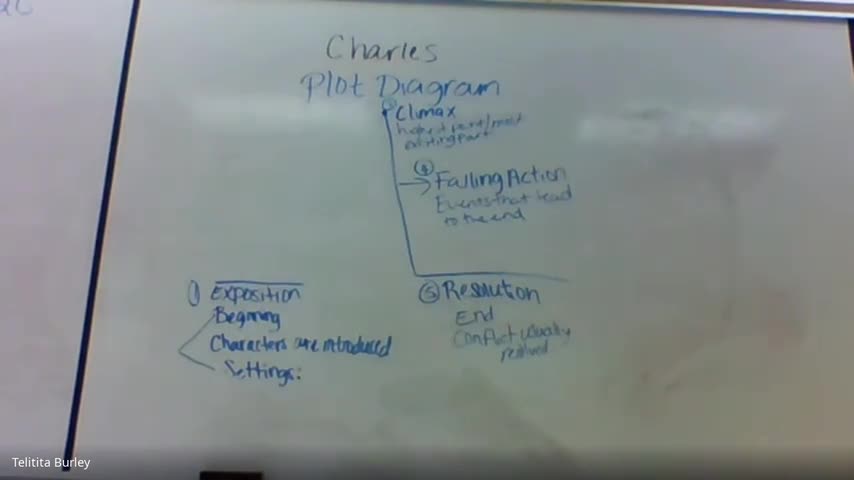 Charles
Plot Diagram
Climax
highest point/most
exciting part
④
Falling Action
Events that lead
to the end
① Exposition
Begining
Characters are introduced
Settings:
⑤ Resolution
End
Conflict usually
resolved
Telitita Burley